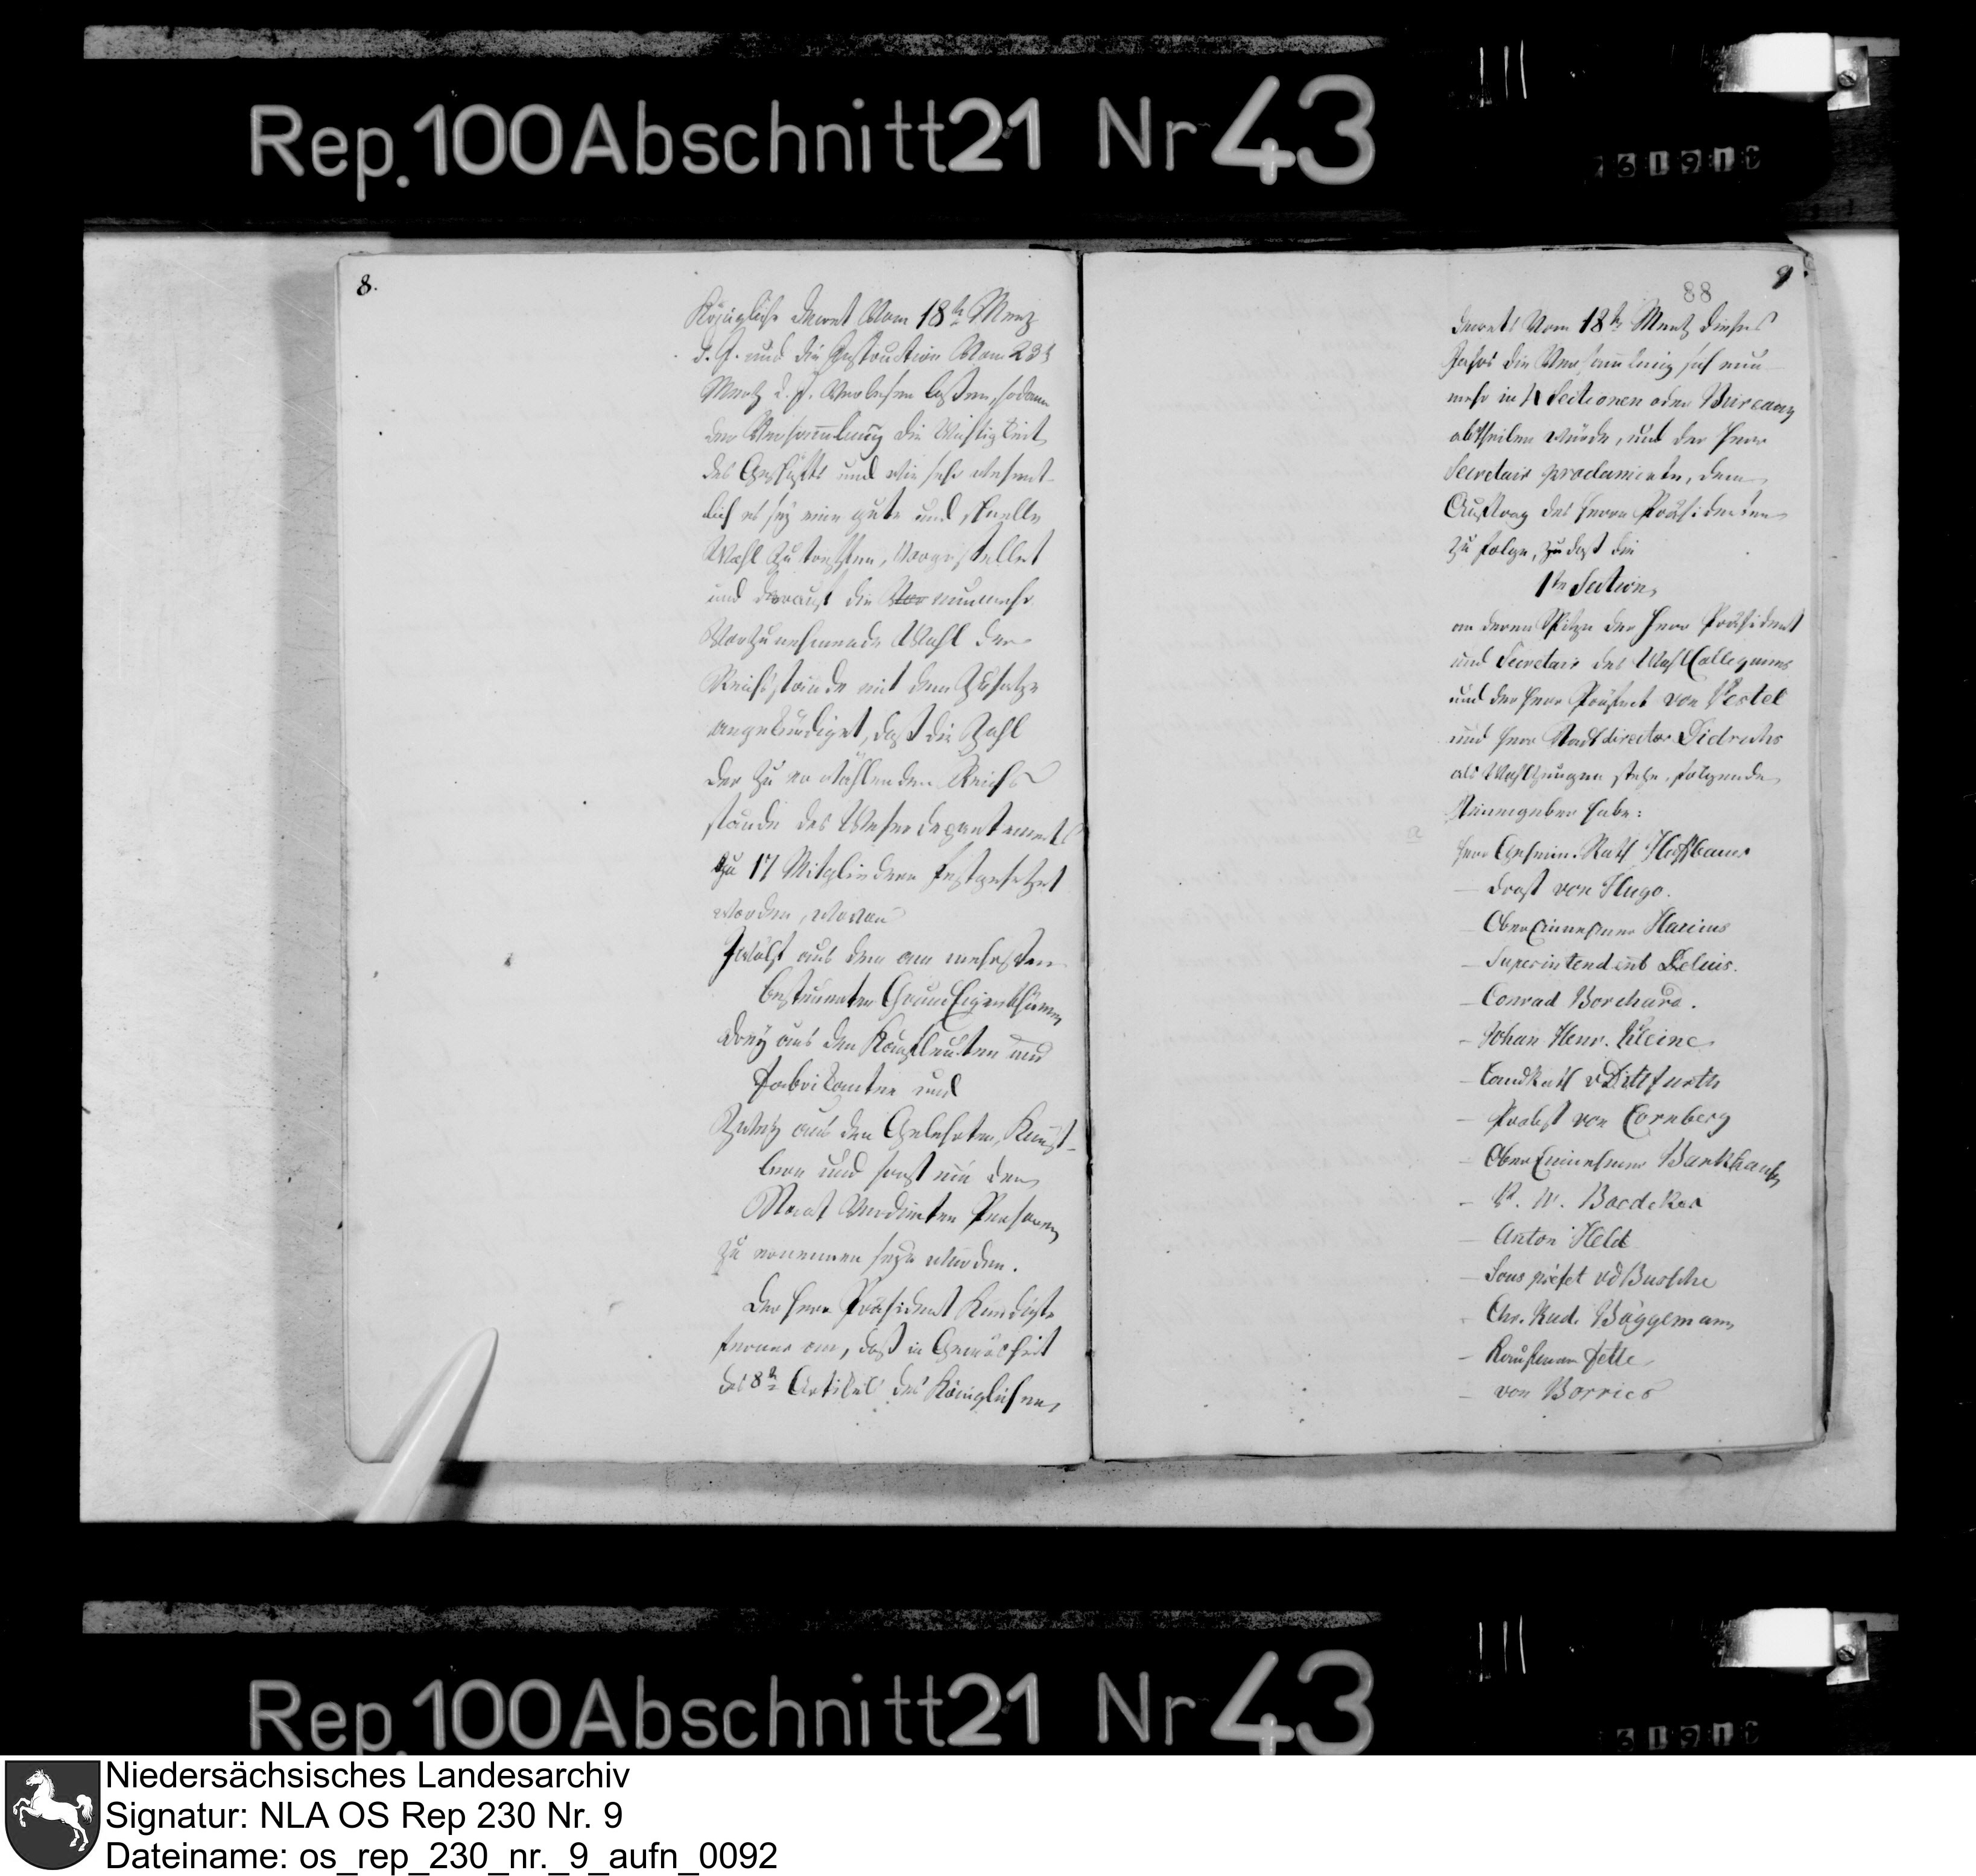 Rep. 100 Abschnitt 21 Nr 43
8.
Königliche Decret Vom 18t Merz
d. J. und die Instruction Vom 23t
Mertz d. J. Verlesen laßen, sodann
der Versammlung die Wichtigkeit
des Geschäfts und wie sehr wesent-
lich es sey eine gute und schnelle
Wahl zu treffen, Vorgestellet
und darauf die Vor nunmehr
Vorzunehmende Wahl der
Reichsstände mit dem Zusatze
angekündiget, daß die Zahl
der zu erwählenden Reichs
stände des Weser departements
zu 17 Mitgliedern festgesetzet
worden, wovon
Zwölf aus den am mehrsten
besteuerten Grund Eigenthümern
Drey aus den Kaufleuten und
Fabrikanten und
Zwey aus den Gelehrten, Künst-
lern und sonst um den
Staat Verdienten Personen
zu ernennen seyn würden.
Der Herr Präsident kündigte
ferner an, daß in Gemäsheit
des 8t Artikels des Königlichen
88
9
Decrets Vom 18t Mertz dieses
Jahrs die Versammlung sich nun
mehr in 4 Sectionen oder Bureaux
abtheilen würde, und der Herr
Secretair proclamirte, dem
Auftrag des Herrn Präsidenten
zu folge, daß die
1te Section,
an deren Spitze der Herr Präsident
und Secretair des Wahl Collegiums
und der Herr Präfect von Pestel
und Herr Stadtdirector Diedrichs
als Wahlzeugen stehe, folgende
Stimmgeber habe:
Herr Geheim. Rath Hoffbauer
— Drost von Hugo.
— Ober Einnehmer Harius
— Superintendent Delius.
— Conrad Borchard.
— Johan Henr. Kleine
— Landrath v Ditfurth
— Probst von Cornberg
— Ober Einnehmer Barkhaus
— W. Boedeker
— Anton Held
— Sous préfet vd Bussche
— Chr. Rud. Büggemann
— Kaufmann Fette
— von Borries
Rep. 100 Abschnitt 21 Nr 43
Niedersächsisches Landesarchiv
Signatur: NLA OS Rep 230 Nr. 9
Dateiname: os_rep_230_nr._9_aufn_0092